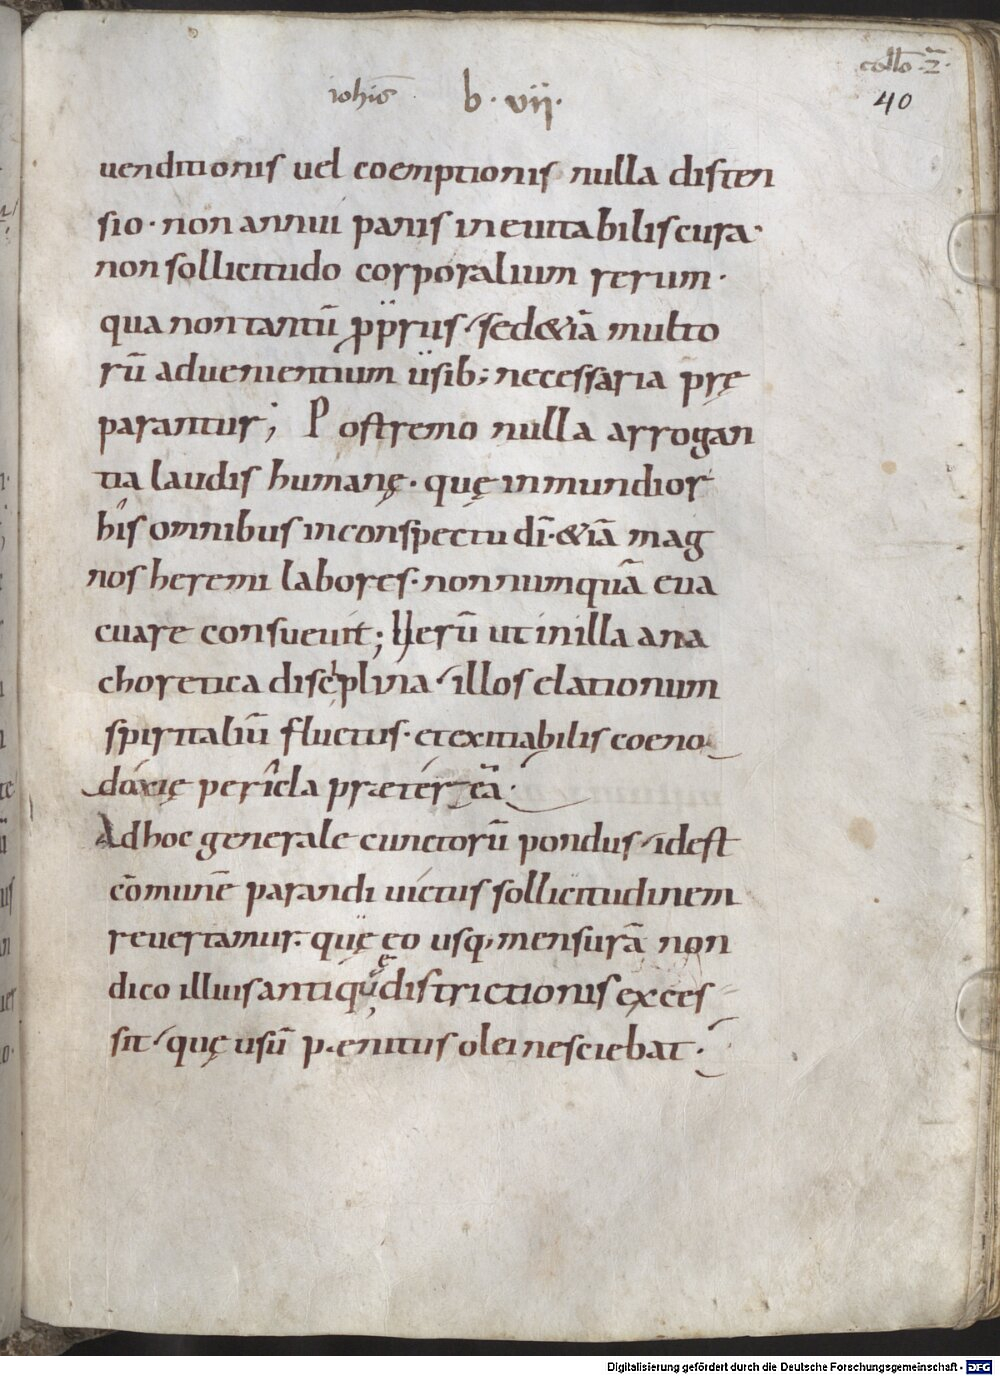 collō .2̄.
iohīs b. vii.
40
uenditionis uel coemptionis nulla disten
sio· non annui panis ineuitabilis cura·
non sollicitudo corporalium rerum·
qua non tantū ꝓprus, sed &iā multo
rū aduenientium usib; necessaria prę
parantur; Postremo nulla arrogan
tia laudis humanę· quę inmundior
his omnibus inconspectu dī· &iā mag
nos heremi labores· non numquā eua
cuare consueuit; Uerū ut inilla ana
choretica disciplina, illos elationum
spiritaliū fluctus· et exitiabilis coeno
doxię pericla præter eā·
Ad hoc generale cunctorū pondus, idest
cōmunē parandi uictus sollicitudinem
reuertamur· quę eo usq; mensurā non
dico illius antiquę districtionis exces
sit, quę usū pænitus olei nesciebat·
Digitalisierung gefördert durch die Deutsche Forschungsgemeinschaft - DFG